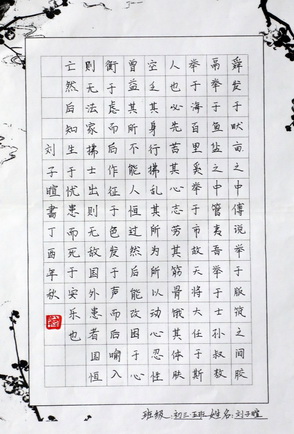 舜发于畎亩之中傅说举于版筑之间胶
鬲举于鱼盐之中管夷吾举于士孙叔敖
举于海百里奚举于市故天将大任于斯
人也必先苦其心志劳其筋骨饿其体肤
空乏其身行拂乱其所为所以动心忍性
曾益其所不能人恒过然后能改困于心
衡于虑而后作征于色发于声而后喻入
则无法家拂士出则无敌国外患者国恒
亡然后知生于忧患而死于安乐也
刘子暄书丁酉年秋
班级:初三五班 姓名:刘子暄